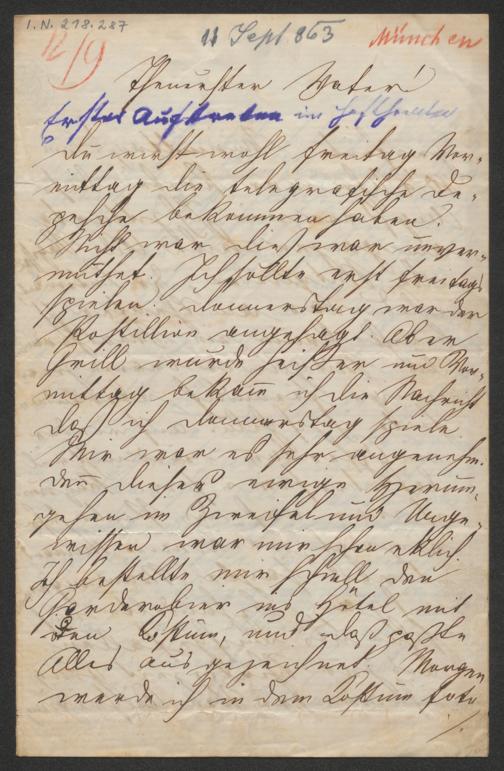 I.N. 218.287
12/9
11 Sept 863
München
Theuerster Vater!
Erstes Auftreten im Hoftheater
Du wirst wohl Freitag Vor-
mittag die telegrafische De-
pesche bekommen haben.
Nicht war dieß war unver-
muthet. Ich sollte erst Freitags
spielen. Donnerstag war der
Postillion angesagt. Aber
Grill wurde heißer und Vor-
mittag bekam ich die Nachricht
daß ich Donnerstag spiele
Mir war es sehr angenehm.
den dieses ewige Herum-
gehen im Zweifel und Unge-
wissen war mir schon eklich.
Ich bestellte mir schnell den
Garderobier ins Hôtel mit
den Costüm, und daß paßte
Alles ausgezeichnet. Morgen
werde ich in dem Costüm foto
./.